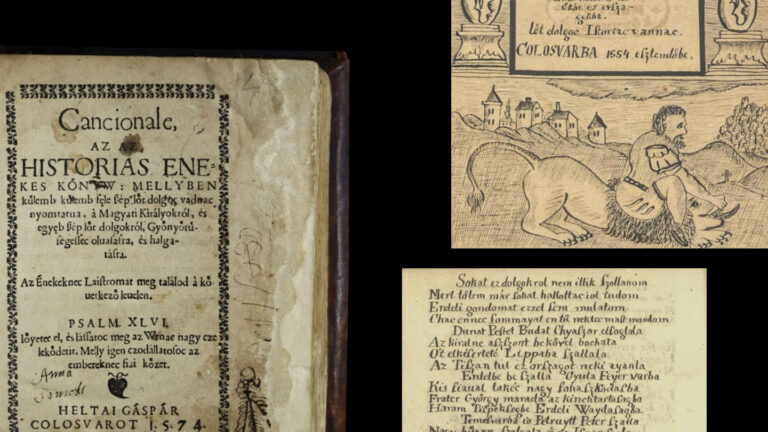 Cancionale,
AZ AZ,
HISTORIAS ENE-
KES KÖNYW: MELLYBEN
külemb külemb fele szép lőtt dolgoc vadnac
nyomtatua, à Magyari Királyokról, és
egyéb szép lőtt dolgokról, Gyönyörű-
ségessec oluasásra, és halga-
tásra.
Az Énekeknec Laistromat meg talalod à kö-
uetkezö leuelen.
PSALM. XLVI.
Iöyetec el, és lássatoc meg az Wrnac nagy cze
lekődetit. Melly igen czodállatosoc az
embereknec fiai közöt.
Anna
HELTAI GÁSPÁR
COLOSVAROT 1.5.74.
ökbe es
gekba.
löt dolgoc Istoriac vannac.
COLOSVARBA 1554 esztendöbe.
Sokat ez dolgokrol nem illik Szollanom
Mert tölem már sokat hallottac iol tudom
Erdeli gondomat ezzel sem mulatom
Chac ennec sommayat en tü nektec mast mondom
Dunat Pestet Budat Chyaszar elfoglala
Az kiralne aszszont bekövel bochata
Öt elkésérteté Lippaba szallala
Az Tiszan tul ez országot neki ayanla
Erdelbe be szalla Gyula Feyer varba
Kis fiaual lakéc nagy sohaszkodasba
Frater György marada az kinchtartosagba
Harom Pispeksegbe Erdeli Waydasagba
Temesvarba io Petrwytt Peter szalla